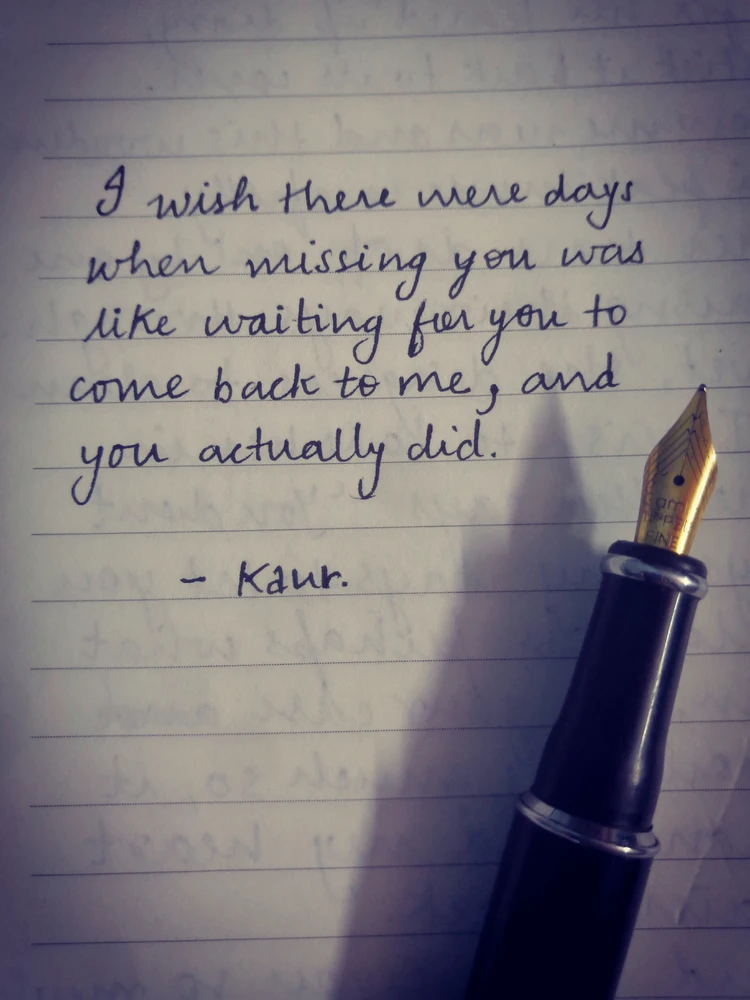 I wish there were days
when missing you was
like waiting for you to
come back to me, and
you actually did.
- Kaur.
FINE